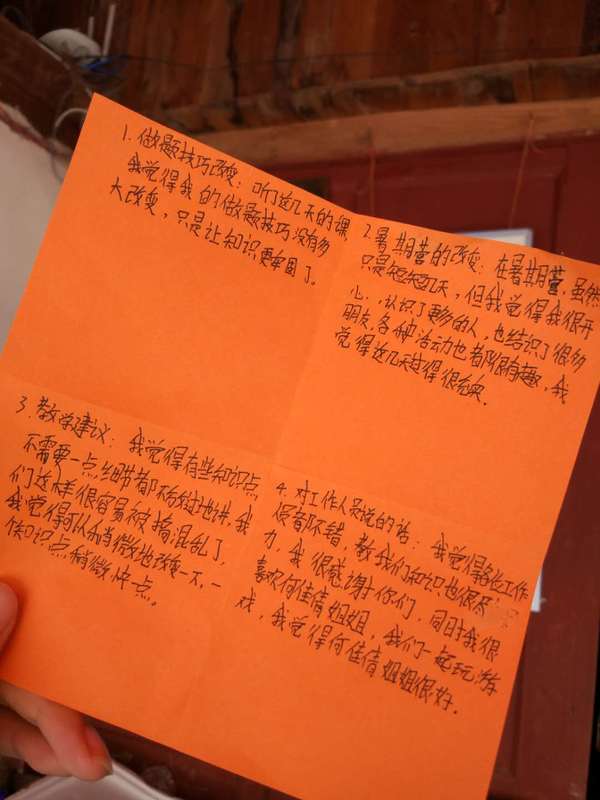 1. 做题技巧改变：听了这几天的课，
我觉得我的做题技巧没有多
大改变，只是让知识更牢固了。
2.暑期营的改变：在暑期营，虽然
只是短短几天，但我觉得我很开
心，认识了更多的人，也结识了很多
朋友，各种活动也都很有趣，我
觉得这几天过得很充实。
3.教学建议：我觉得有些知识点
不需要一点细节都不放过地讲，我
们这样很容易被搞混乱了，
我觉得可以稍微地改变一下，一
些知识点稍微快一点。
4.对工作人员说的话：我觉得各位工作
很都不错，教我们知识也很尽
力，我很感谢你们，同时我很
喜欢何佳倩姐姐，我们一起玩游
戏，我觉得何佳倩姐姐很好。